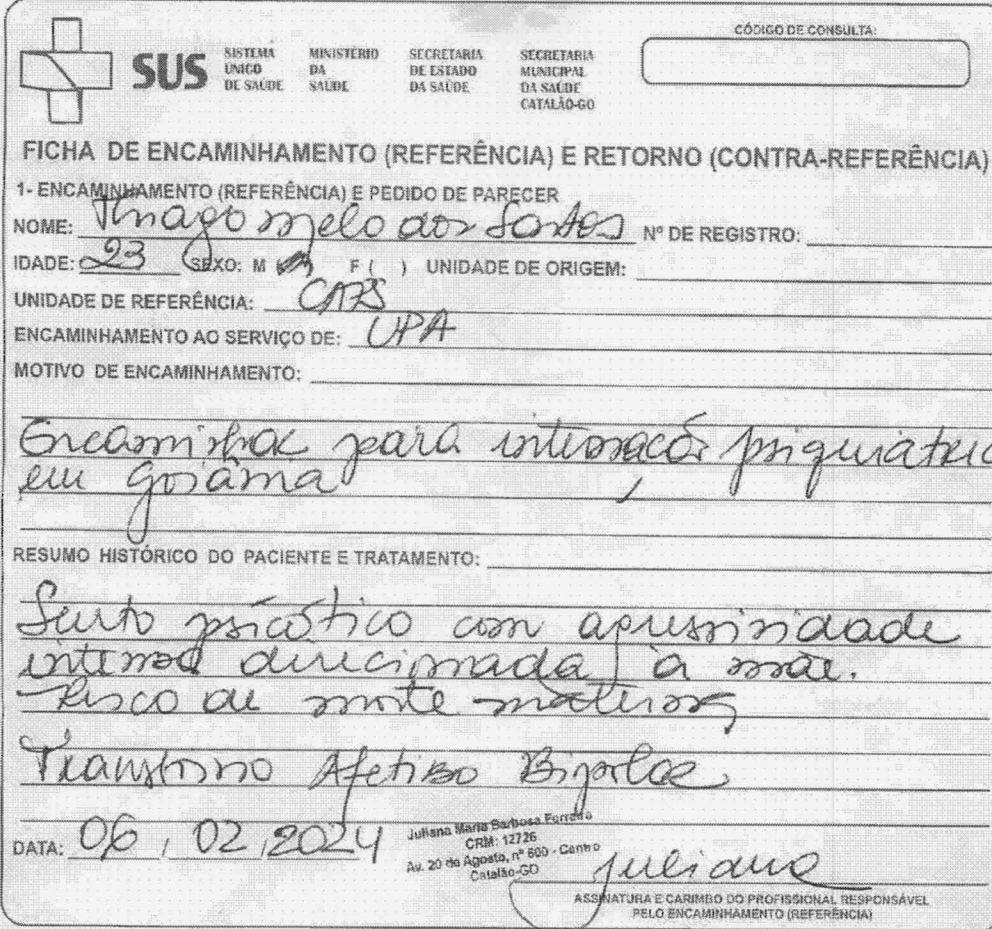 CÓDIGO DE CONSULTA:
SUS
SISTEMA
ÚNICO
DE SAÚDE
MINISTÉRIO
DA
SAÚDE
SECRETARIA
DE ESTADO
DA SAÚDE
SECRETARIA
MUNICIPAL
DA SAÚDE
CATALÃO-GO
FICHA DE ENCAMINHAMENTO (REFERÊNCIA) E RETORNO (CONTRA-REFERÊNCIA)
1- ENCAMINHAMENTO (REFERÊNCIA) E PEDIDO DE PARECER
NOME: Thiago Melo dos Santos Nº DE REGISTRO:
IDADE: 23 SEXO: M (X) F ( ) UNIDADE DE ORIGEM:
UNIDADE DE REFERÊNCIA: CAPS
ENCAMINHAMENTO AO SERVIÇO DE: UPA
MOTIVO DE ENCAMINHAMENTO:
Encaminhar para internação psiquiátric
em Goiânia
RESUMO HISTÓRICO DO PACIENTE E TRATAMENTO:
Surto psicótico com agressividade
intensa direcionada à mãe.
Risco de morte materna
Transtorno Afetivo Bipolar
DATA: 06 / 02 / 2024
Juliana Maria Barbosa Ferreira
CRM: 12726
Av. 20 de Agosto, nº 600 - Centro
Catalão-GO
Juliana
ASSINATURA E CARIMBO DO PROFISSIONAL RESPONSÁVEL
PELO ENCAMINHAMENTO (REFERÊNCIA)